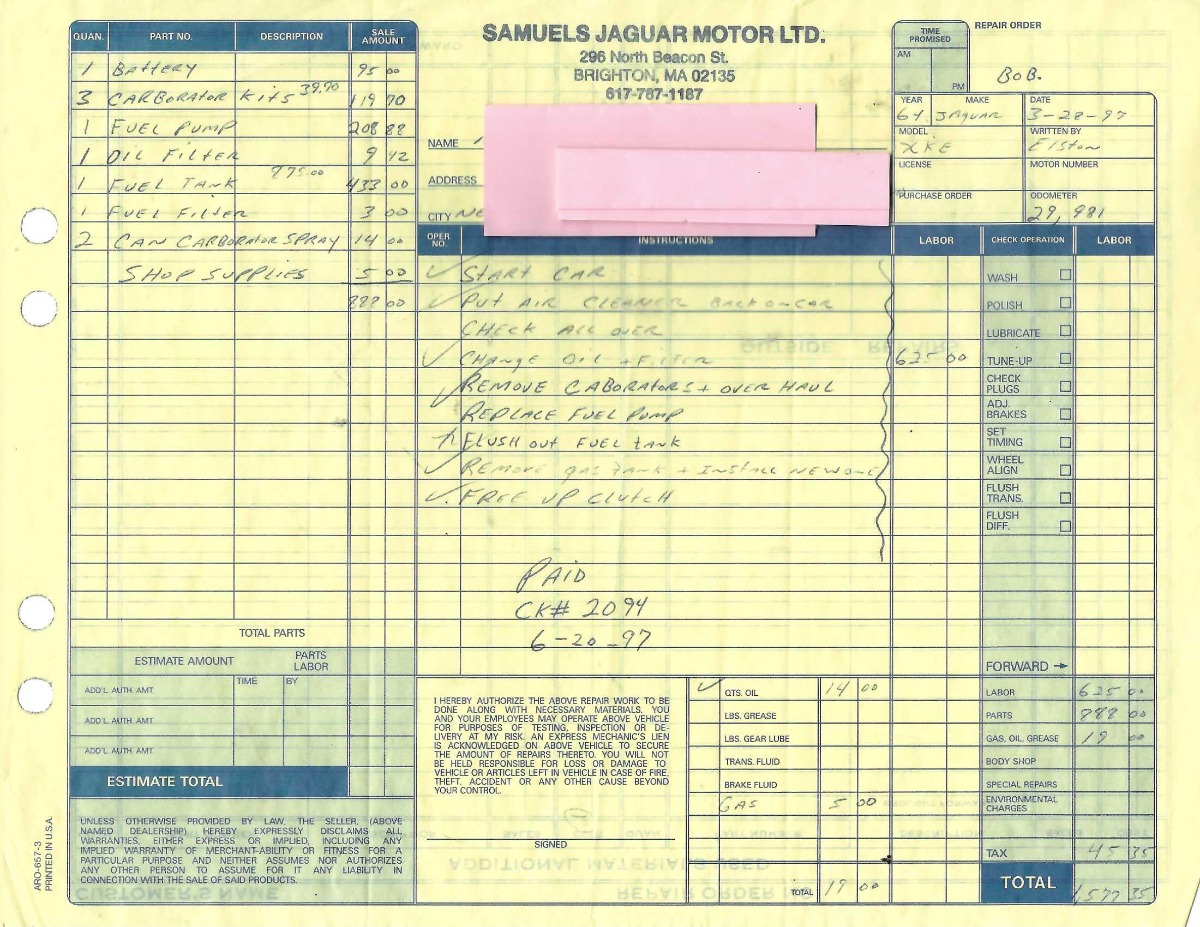 SAMUELS JAGUAR MOTOR LTD.
296 North Beacon St.
BRIGHTON, MA 02135
617-787-1187
REPAIR ORDER
TIME PROMISED
AM
PM
BOB.
YEAR MAKE DATE
64 JAGUAR 3-28-97
MODEL WRITTEN BY
XKE Elston
LICENSE MOTOR NUMBER
PURCHASE ORDER ODOMETER
29,981
NAME
ADDRESS
CITY NE
QUAN. PART NO. DESCRIPTION SALE AMOUNT
1 BATTERY 95 00
3 CARBORATOR KITS 39.90 119 70
1 FUEL PUMP 208 88
1 OIL FILTER 9 42
1 FUEL TANK 875.00 433 00
1 FUEL FILTER 3 00
2 CAN CARBORATOR SPRAY 14 00
SHOP SUPPLIES 5 00
888 00
TOTAL PARTS
ESTIMATE AMOUNT PARTS LABOR
TIME BY
ADD'L AUTH. AMT.
ADD'L AUTH. AMT.
ADD'L AUTH. AMT.
ESTIMATE TOTAL
UNLESS OTHERWISE PROVIDED BY LAW, THE SELLER, (ABOVE
NAMED DEALERSHIP), HEREBY EXPRESSLY DISCLAIMS ALL
WARRANTIES, EITHER EXPRESS OR IMPLIED, INCLUDING ANY
IMPLIED WARRANTY OF MERCHANT-ABILITY OR FITNESS FOR A
PARTICULAR PURPOSE AND NEITHER ASSUMES NOR AUTHORIZES
ANY OTHER PERSON TO ASSUME FOR IT ANY LIABILITY IN
CONNECTION WITH THE SALE OF SAID PRODUCTS.
ARO-657-3
PRINTED IN U.S.A.
OPER. NO. INSTRUCTIONS LABOR CHECK OPERATION LABOR
START CAR
PUT AIR CLEANER BACK ON CAR
CHECK ALL OVER
CHANGE OIL + FILTER 625 00
REMOVE CABORATORS + OVER HAUL
REPLACE FUEL PUMP
FLUSH OUT FUEL TANK
REMOVE GAS TANK + INSTALL NEW ONE
FREE UP CLUTCH
PAID
CK# 2094
6-20-97
WASH
POLISH
LUBRICATE
TUNE-UP
CHECK PLUGS
ADJ. BRAKES
SET TIMING
WHEEL ALIGN
FLUSH TRANS.
FLUSH DIFF.
FORWARD
I HEREBY AUTHORIZE THE ABOVE REPAIR WORK TO BE
DONE ALONG WITH NECESSARY MATERIALS. YOU
AND YOUR EMPLOYEES MAY OPERATE ABOVE VEHICLE
FOR PURPOSES OF TESTING, INSPECTION OR DE-
LIVERY AT MY RISK. AN EXPRESS MECHANIC'S LIEN
IS ACKNOWLEDGED ON ABOVE VEHICLE TO SECURE
THE AMOUNT OF REPAIRS THERETO. YOU WILL NOT
BE HELD RESPONSIBLE FOR LOSS OR DAMAGE TO
VEHICLE OR ARTICLES LEFT IN VEHICLE IN CASE OF FIRE,
THEFT, ACCIDENT OR ANY OTHER CAUSE BEYOND
YOUR CONTROL.
SIGNED
QTS. OIL 14 00
LBS. GREASE
LBS. GEAR LUBE
TRANS. FLUID
BRAKE FLUID
GAS 5 00
TOTAL 19 00
LABOR 625 00
PARTS 888 00
GAS, OIL, GREASE 19 00
BODY SHOP
SPECIAL REPAIRS
ENVIRONMENTAL CHARGES
TAX 45 35
TOTAL 1,577 35